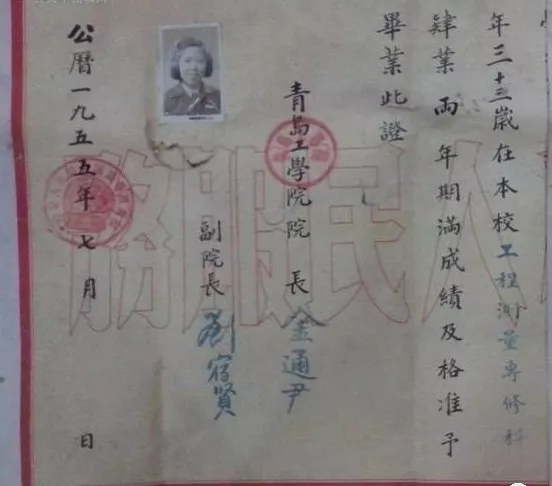 年三十三歲在本校工程测量專修科
肄業兩年期滿成績及格准予
畢業此證
青島工學院院長金通尹
副院長劉宿賢
公曆一九五五年七月 日
人民服務